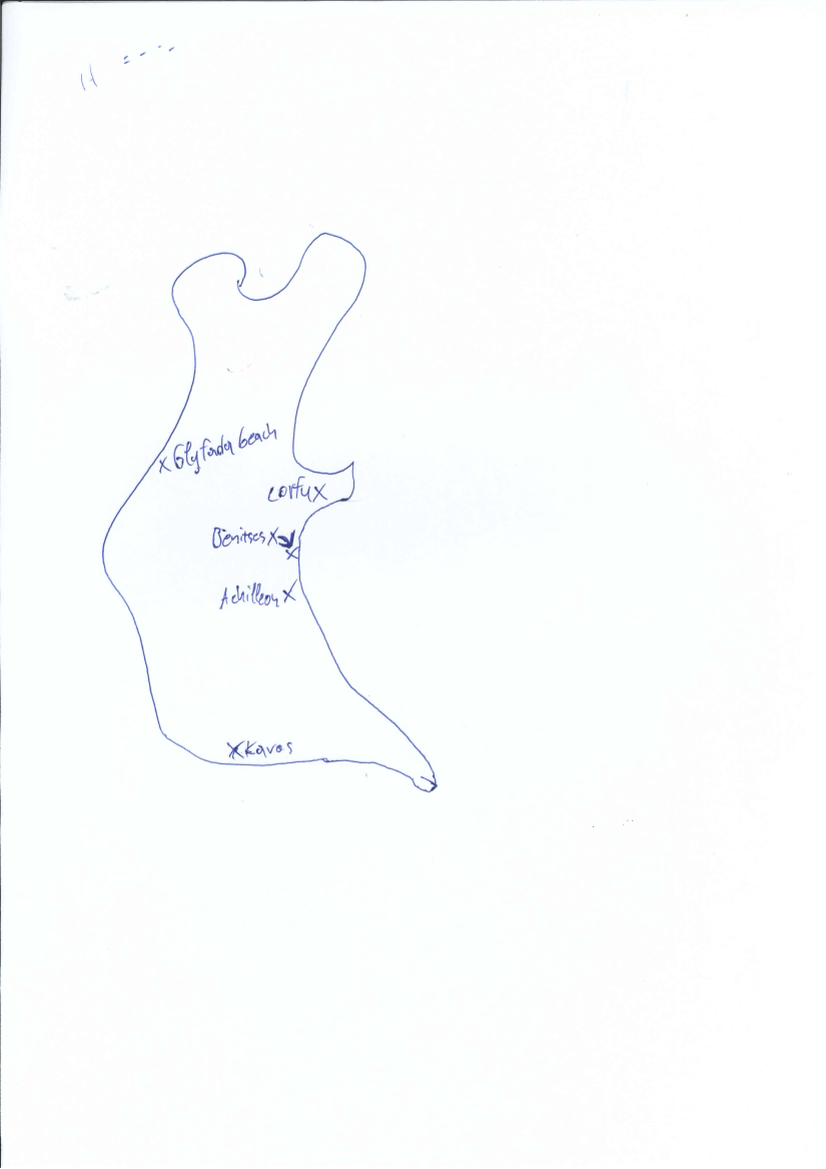 Glyfada beach
corfu
Benitses
Achilleon
Kavos